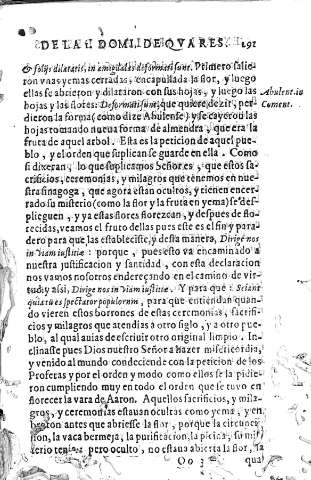 DE LA II DOMI. DE QVARES. 191
& folijs dilatatis, in amigdalas deformati sunt. Primero salie-
ron vnas yemas cerradas, encapullada la flor, y luego
ellas se abrieron y dilataron con sus hojas, y luego las
hojas y las flores: Deformati sunt, que quiere dezir, per-
dieron la forma (como dize Abulense) y se cayeron las
hojas tomando nueua forma de almendra, que era la
fruta de aquel arbol. Esta es la peticion de aquel pue-
blo, y el orden que suplican se guarde en ella. Como
si dixeran, lo que suplicamos Señor es, que estos sa-
crificios, ceremonias, y milagros que tenemos en nue-
stra sinagoga, que agora estan ocultos, y tienen encer-
rado su misterio (como la flor y la fruta en yema) se des-
plieguen, y ya estas flores florezcan, y despues de flo-
recidas, veamos el fruto dellas pues este es el fin y para-
dero para que las establecistes, y desta manera, Dirige nos
in viam iustitiæ: porque, pues esto va encaminado a
nuestra justificacion y santidad, con esta declaracion
nos vamos nosotros endereçando en el camino de vir-
tud, y assi, Dirige nos in viam iustitiæ. Y para que: Sciant
quia tu es spectator populorum, para que entiendan quan-
do vieren estos borrones de estas ceremonias, sacrifi-
cios y milagros que atendias a otro siglo, y a otro pue-
blo, al qual auias de escriuir otro original limpio. In-
clinasse pues Dios nuestro Señor a hazer misericordia,
y venido al mundo condeciende con la peticion de los
Profetas y por el orden y modo como ellos se la pidie-
ron cumpliendo muy en todo el orden que se tuuo en
florecer la vara de Aaron. Aquellos sacrificios, y mila-
gros, y ceremonias estauan ocultas como yema, y en
boton antes que abriesse la flor, porque la circunci-
sion, la vaca bermeja, la purificacion, la picina, su mi-
sterio tenian pero oculto, no estaua abierta la flor, la
Oo 3 qua
Abulent. in
Cument.